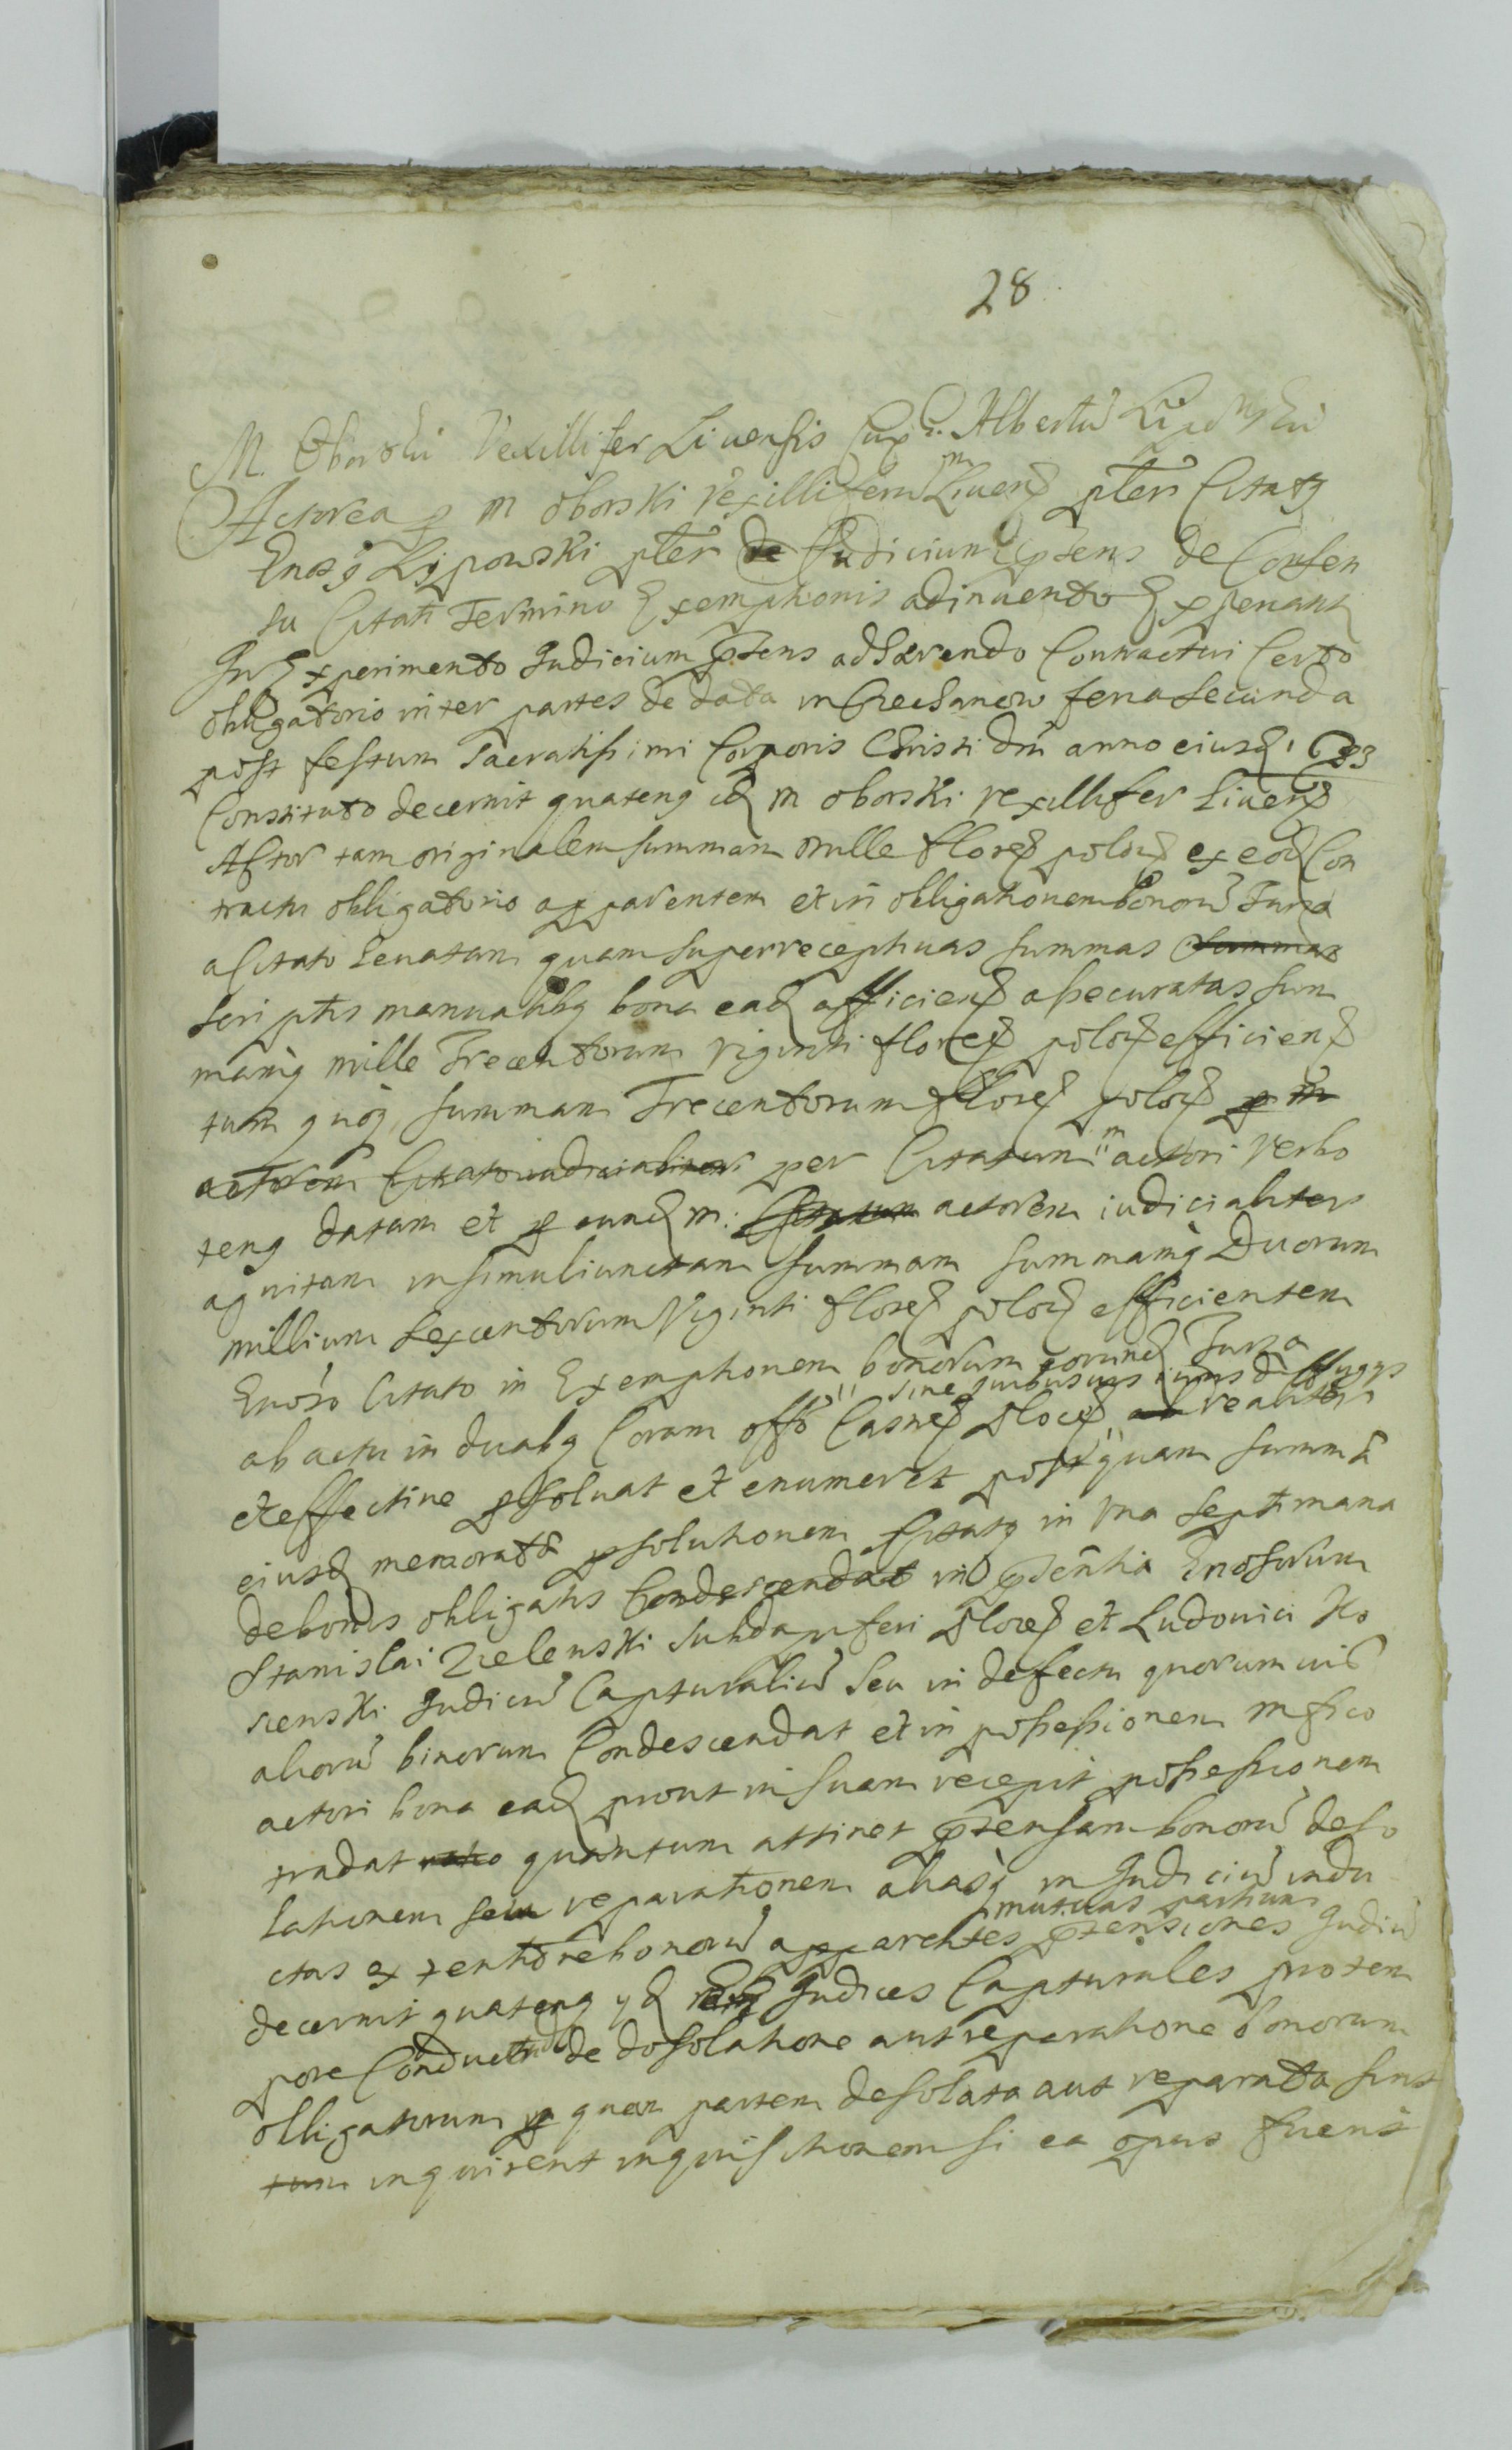 28
M. Oborski Vexillifer Liuensis Albertū
Actorea p m oborski Vexilliferū Liuens pter Citatq
Enosq Lipowski pter Judicium pns de Consen
su Citati Termino Exemptionis adinuento Expenant
In Experimento Judicium pns adhærendo Contractui Certo
obligatorio inter partes de data in feria secunda
post festum Sacratissimi Corporis Christi Dni anno eiusd
Constituto decernit quatenq id m oborski vexillifer Liuens
Actor tam originalem summam mille floren polon ex eod Con
tractu obligatorio apparentem et in obligationem bonorū Turza
a Citato leuatam quam superreceptiuas summas summas
scriptis manualibq bona ead afficien assecuratas sum
mamq mille Trecentorum viginti floren polon efficien
tum quoq summam Trecentorum floren polon p m
actorem Citato iudicialiter per Citatum m actori verbo
tenq datam et p eund m: Citatum actorem iudicialiter
agnitam insimuliunctam summam summamq Duorum
millium sexcentorum Viginti floren polon efficientem
Enoso Citato in Exemptionem bonorum eorund Turza
sine quibusuis iuris diffugys
ab actu in duabq Coram offo Castren Plocen ad realiter
et effectiue psoluat et enumeret post quam summæ
eiusd memoratæ psolutionem Citatq in vna septimana
de bonis obligatis Condescendat in pntia Enosorum
Stanislai Zielenski subdapiferi Plocen et Ludouici Ko
sienski Judicū Capturaliū seu in defectu quorumuis
aliorū binorum Condescendat et in possessionem mfico
actori bona ead prout in suam recepit possessionem
tradat quantum attinet ptensam bonorū deso
lationem seu reparationem aliasq in Judiciū indu
mutuas partium
ctas ex tentione bonorū apparentes ptensiones Judiciū
decernit quatenq yd Judices Capturales pro tem
pore Conductū de desolatione aut reparatione bonorum
obligatorum p quam partem desolata aut reparata sint
tum inquirent inquisitionem si ea opus fuerit